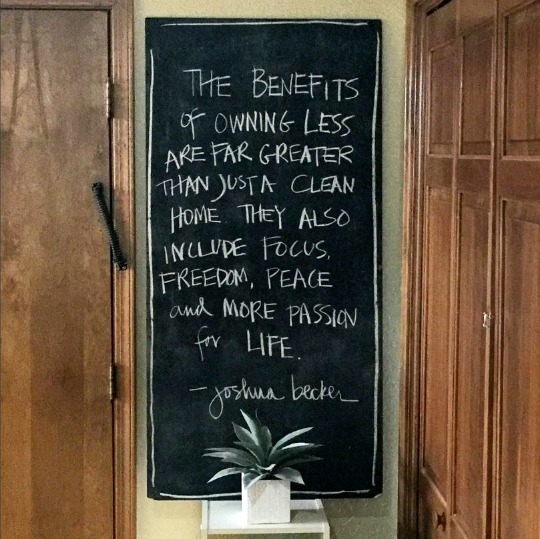 THE BENEFITS
OF OWNING LESS
ARE FAR GREATER
THAN JUST A CLEAN
HOME. THEY ALSO
INCLUDE FOCUS,
FREEDOM, PEACE
and MORE PASSION
for LIFE.
- joshua becker